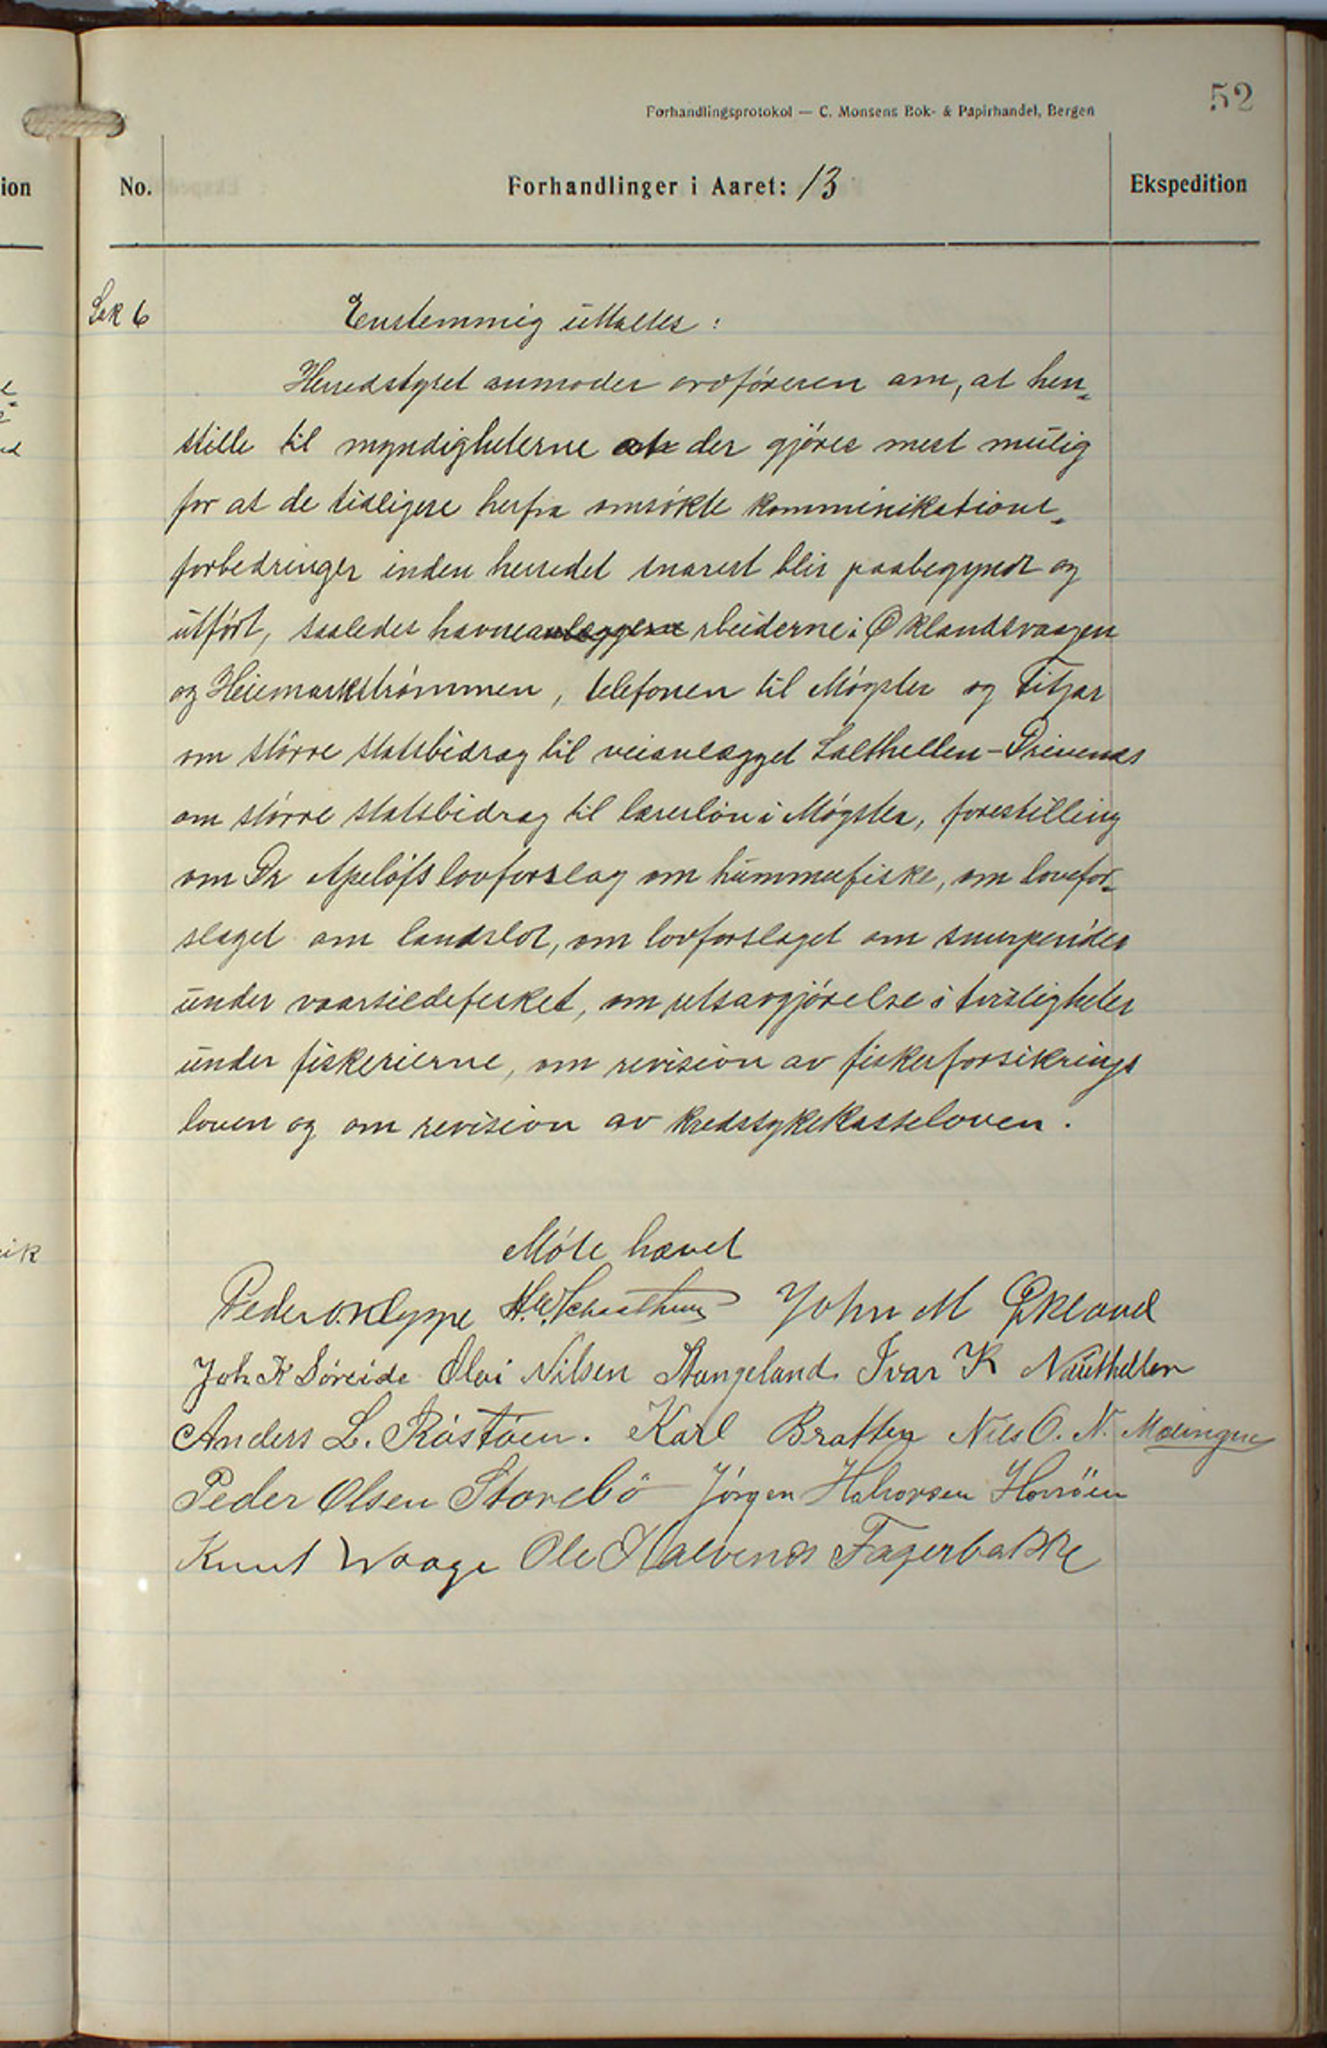 52
Forhandlingsprotokol — C. Monsens Bok- & Papirhandel, Bergen
ion
No.
Forhandlinger i Aaret: 13
Ekspedition
Sak 6
Enstemmig uttaltes:
Herredstyret anmoder ordføreren om, at hen-
stille til myndigheterne at der gjøres mest mulig
for at de tidligere herfra omsøkte kommunikations-
forbedringer inden herredet snarest blir paabegyndt og
utført, saaledes havneanlæggene rbeiderne i Øklandsvaagen
og Heiemarkstrømmen, telefonen til Møgster og Fitjar
om større statsbidrag til veianlægget Salthellen - Drivenes
om større statsbidrag til lærerløn i Møgster, forestilling
om Dr Apeløfs lovforslag om hummerfiske, om lovfor-
slaget om landslot, om lovforslaget om snurpenøter
under vaarsildefisket, om retsavgjørelse i tvistigheter
under fiskerierne, om revision av fiskerforsikrings
loven og om revision av kredssykekasseloven.
ik
Møte hævet
Peder O. Klyppe H. W. Schaathun John M Økland
Joh K Søreide Olai Nilsen Stangeland Ivar K Nauthellen
Anders L. Rostøen. Karl Bratten Nils O. N. Møvingen
Peder Olsen Storebö Jörgen Halvorsen Horröen
Knut Waage Ole Halvenes Fagerbakke